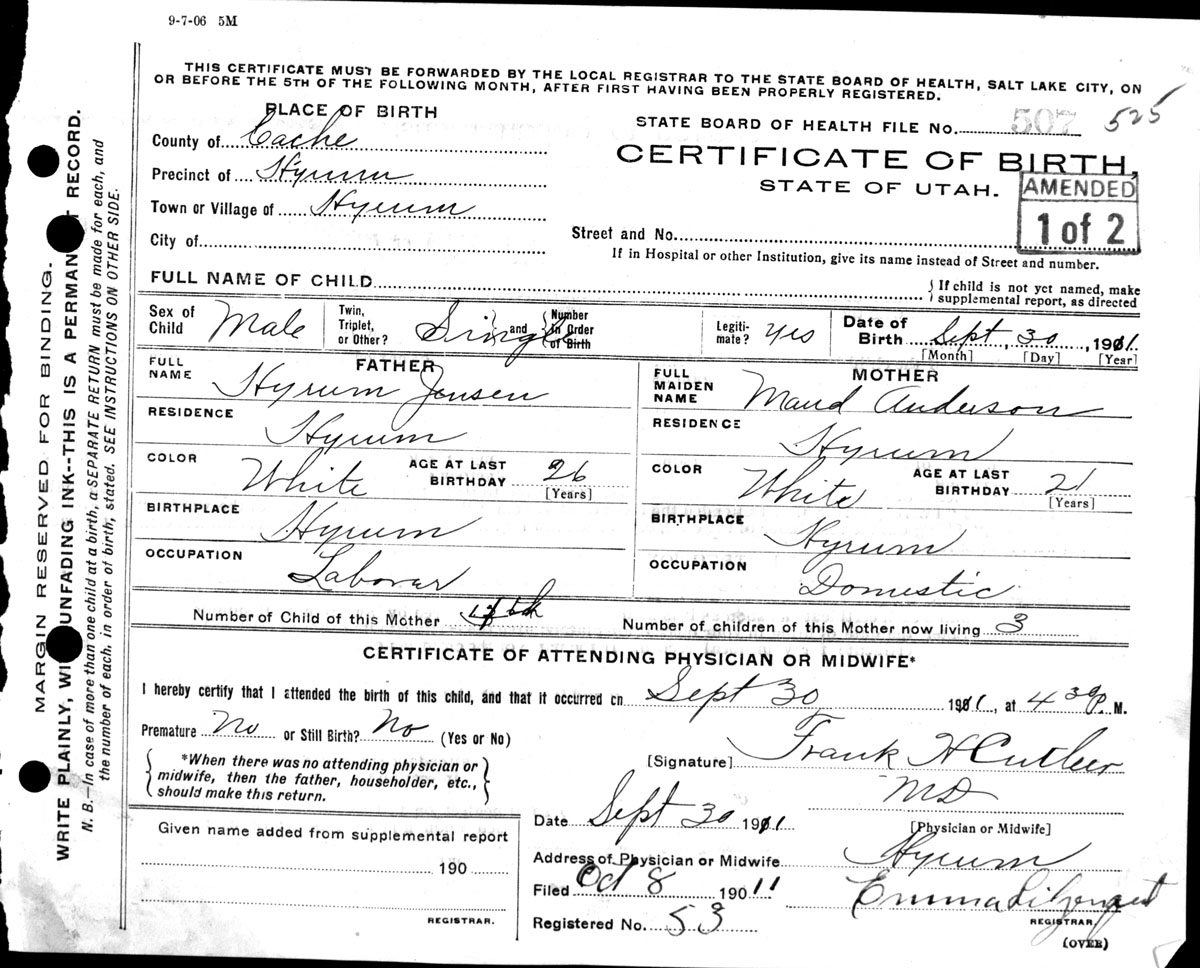 9-7-06 5M
THIS CERTIFICATE MUST BE FORWARDED BY THE LOCAL REGISTRAR TO THE STATE BOARD OF HEALTH, SALT LAKE CITY, ON
OR BEFORE THE 5TH OF THE FOLLOWING MONTH, AFTER FIRST HAVING BEEN PROPERLY REGISTERED.
PLACE OF BIRTH
County of Cache
Precinct of Hyrum
Town or Village of Hyrum
City of
STATE BOARD OF HEALTH FILE No. 507 525
CERTIFICATE OF BIRTH,
STATE OF UTAH.
AMENDED
1 of 2
Street and No.
If in Hospital or other Institution, give its name instead of Street and number.
FULL NAME OF CHILD
If child is not yet named, make
supplemental report, as directed
Sex of Child Male
Twin, Triplet, or Other? Single and Number in Order of Birth
Legiti-mate? Yes
Date of Birth Sept, 30, 1911.
[Month] [Day] [Year]
FATHER
FULL NAME Hyrum Jensen
RESIDENCE Hyrum
COLOR White AGE AT LAST BIRTHDAY 26
[Years]
BIRTHPLACE Hyrum
OCCUPATION Laborer
MOTHER
FULL MAIDEN NAME Maud Anderson
RESIDENCE Hyrum
COLOR White AGE AT LAST BIRTHDAY 21
[Years]
BIRTHPLACE Hyrum
OCCUPATION Domestic
Number of Child of this Mother
Number of children of this Mother now living 3
CERTIFICATE OF ATTENDING PHYSICIAN OR MIDWIFE*
I hereby certify that I attended the birth of this child, and that it occurred on Sept 30 1911, at 4 30 P. M.
Premature No or Still Birth? No (Yes or No)
*When there was no attending physician or
midwife, then the father, householder, etc.,
should make this return.
[Signature] Frank H Cutler
MD
Date Sept 30 1911
[Physician or Midwife]
Address of Physician or Midwife Hyrum
Filed Oct 8 1911
Emma
REGISTRAR.
Registered No. 53
(OVER)
Given name added from supplemental report
190
REGISTRAR.
MARGIN RESERVED FOR BINDING.
WRITE PLAINLY, UNFADING INK--THIS IS A RECORD.
N. B.—In case of more than one child at a birth, a SEPARATE RETURN must be made for each, and
the number of each, in order of birth, stated. SEE INSTRUCTIONS ON OTHER SIDE.